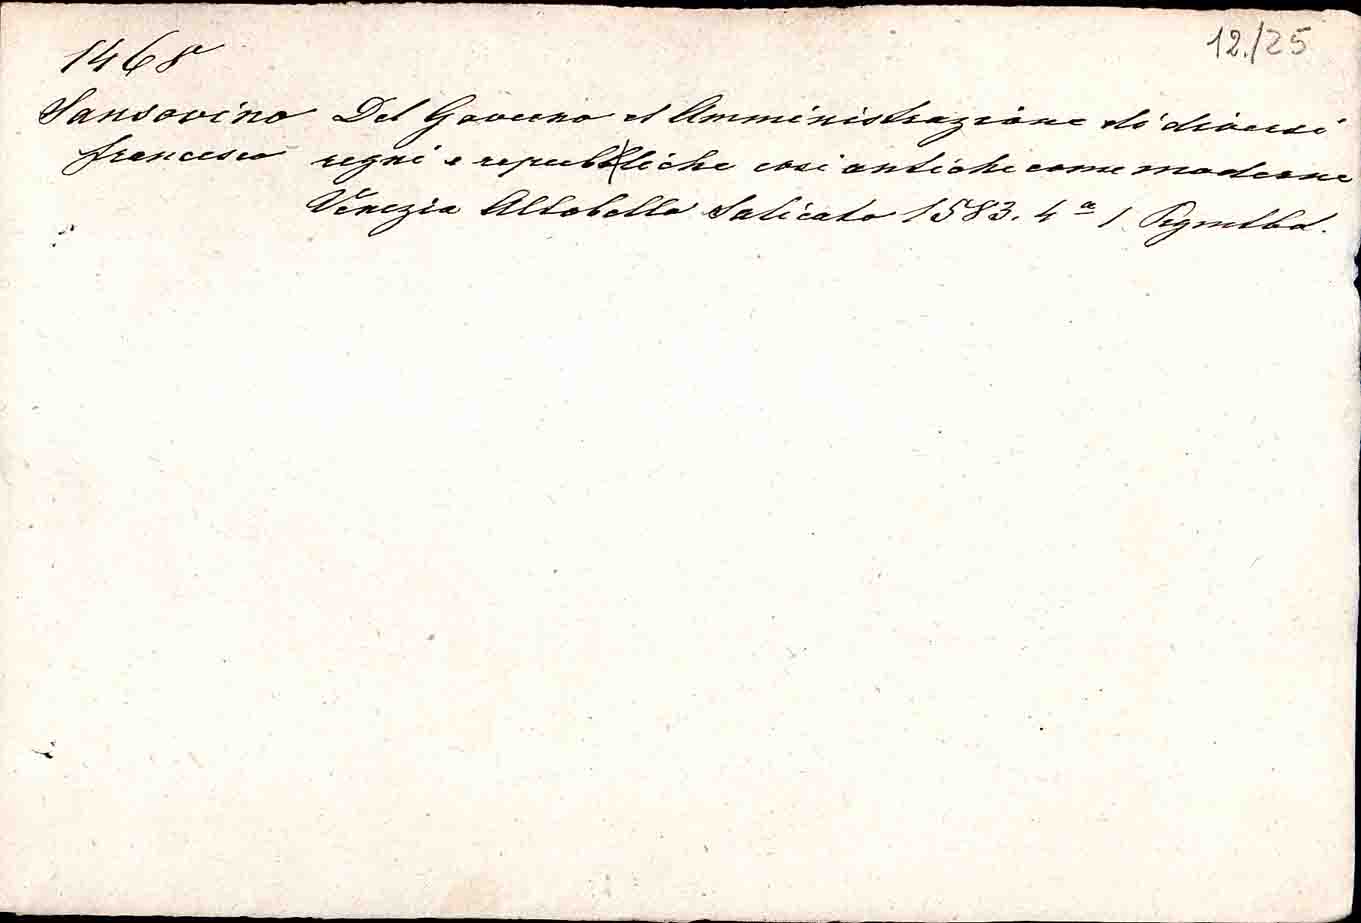 12./25
1468
Sansovino Del Governo et Amministrazione di diversi
francesco regni e republiche cosi antiche come moderne
Venezia Altobello Salicato 1583. 4ª 1 Pgmtbd.